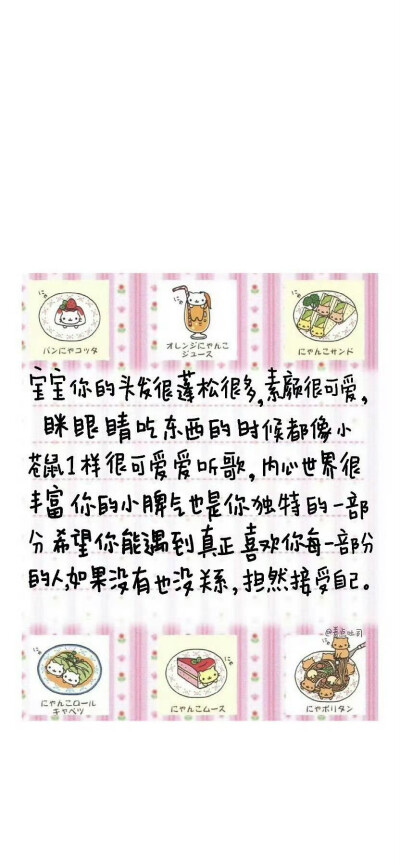 にゃ
にゃ
にゃ
パンにゃコッタ
オレンジにゃんこ
ジュース
にゃんこサンド
宝宝你的头发很蓬松很多,素颜很可爱,
眯眼睛吃东西的时候都像小
苍鼠1样很可爱爱听歌,内心世界很
丰富你的小脾气也是你独特的一部
分希望你能遇到真正喜欢你每一部分
的人,如果没有也没关系,担然接受自己。
にゃ
にゃ
にゃんこロール
キャベツ
にゃんこムース
にゃポリタン